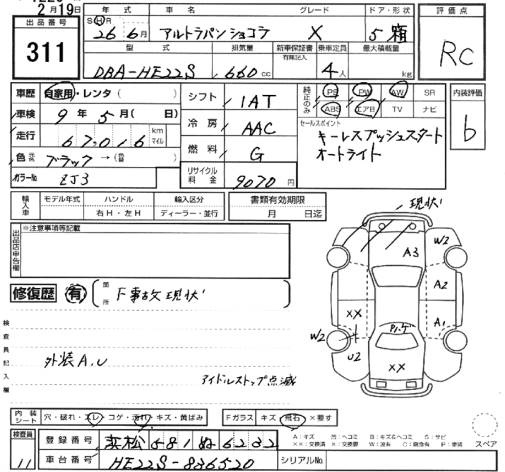 2月19日
出品番号
311
年式
S H R 26年6月
車名
アルトラパンショコラ
グレード
X
ドア・形状
5 箱
評価点
RC
型式
DBA-HE22S
排気量
660cc
新車保証書
有無記入
乗車定員
4人
最大積載量
kg
車歴 自家用・レンタ( )
車検 9年5月(日)
走行 67,016 km マイル
色 ブラック→( )
カラーNo ZJ3
シフト 1AT
冷房 AAC
燃料 G
リサイクル料金 9070円
純正のみ
PS PW AW SR
ABS エアB TV ナビ
セールスポイント
キーレスプッシュスタート
オートライト
内装評価
b
輸入車
モデル年式
ハンドル
右H・左H
輸入区分
ディーラー・並行
書類有効期限
月 日迄
出品店申告欄
※注意事項等記載
修復歴 有
箇所
F事故現状
検査員記入欄
外装A.U
アイドルストップ点滅
現状
A3
W2
A2
XX
A1
W2
U2
XX
内装シート
穴・破れ・スレ・コゲ・汚れ・キズ・黄ばみ
Fガラス キズ 飛石 ×要す
スペア
検査員
11
登録番号 浜松581ぬ6232
車台番号 HE22S-836520
シリアルNo.